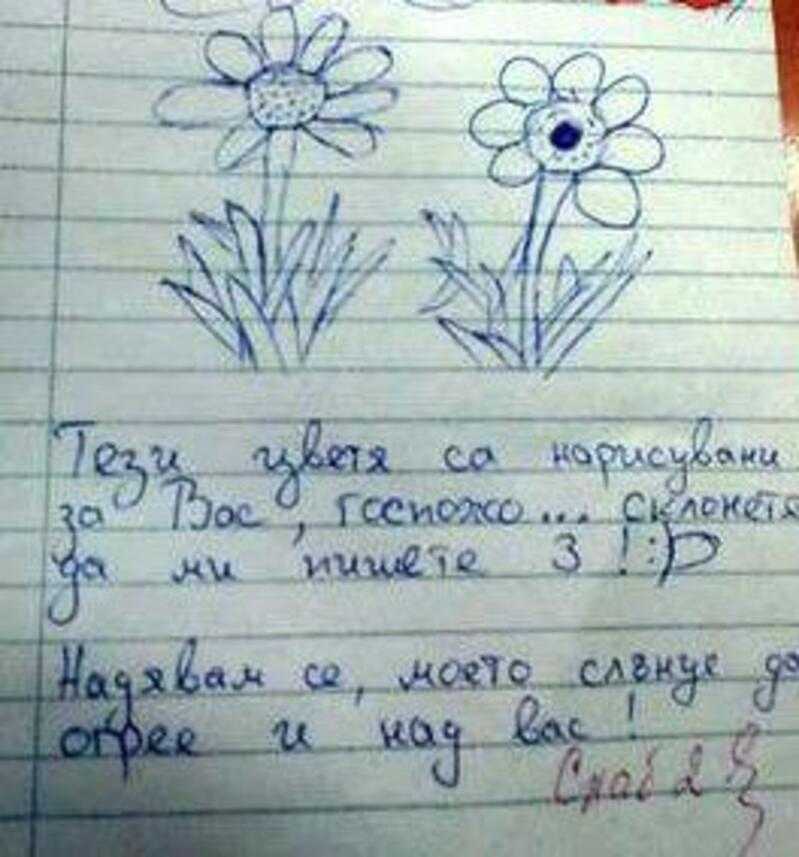 Тези цветя са нарисувани
за Вас, госпожо... склонетя
да ми пишете 3 !:D
Надявам се, моето слънце да
огрее и над вас!
Слаб 2